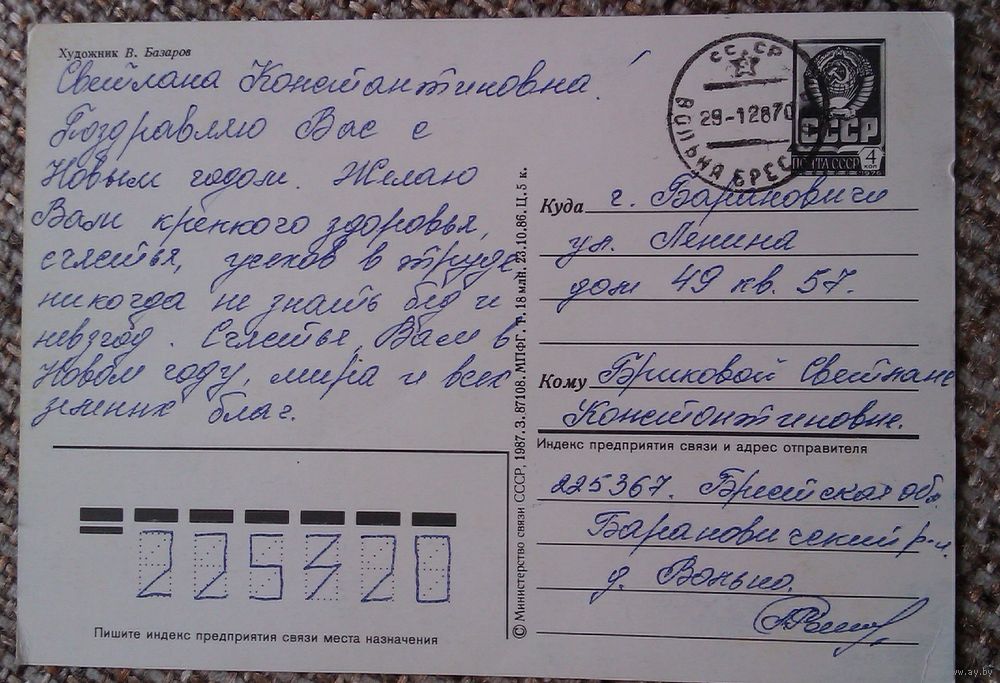 Художник В. Базаров
Светлана Константиновна!
Поздравляю Вас с
Новым годом. Желаю
Вам крепкого здоровья,
счастья, успехов в труде,
никогда не знать бед и
невзгод. Счастья Вам в
Новом году, мира и всех
земных благ.
СССР
29-12870
ВОЛЬНА БРЕС
СССР
ПОЧТА СССР 4 коп
1976
Куда г. Барановичи
ул. Ленина
дом 49 кв. 57.
Кому Бриковой Светлане
Константиновне.
Индекс предприятия связи и адрес отправителя
225367. Брестская обл.
Барановичский р-н
д. Вольно.
225320
Пишите индекс предприятия связи места назначения
© Министерство связи СССР, 1987. З. 87108. МПФГ. Т. 18 млн. 23.10.86. Ц. 5 к.
www.ay.by